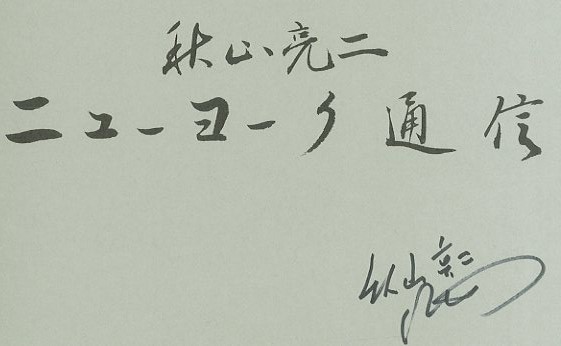 秋山亮二
ニューヨーク通信
秋山亮二